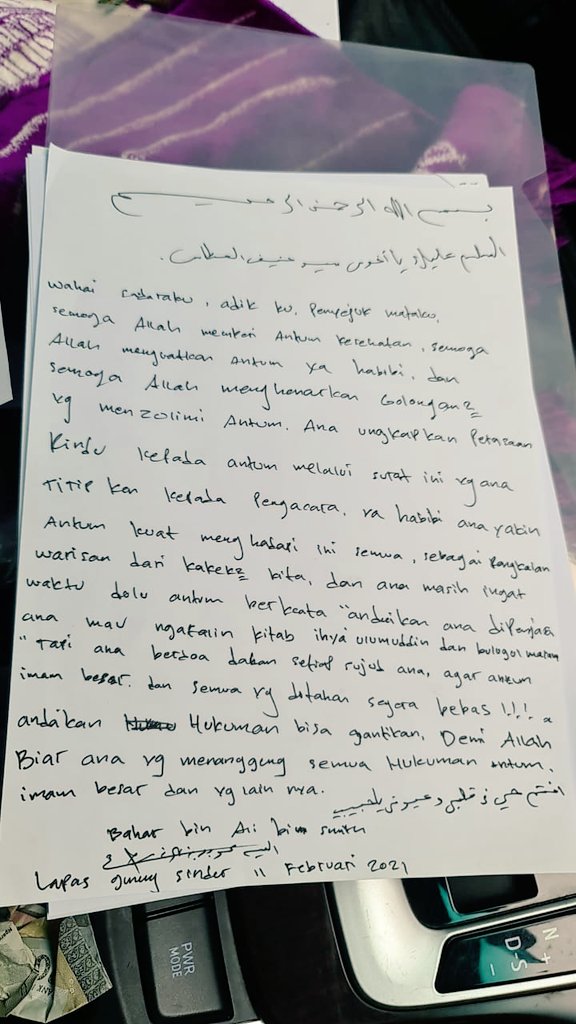 بسم الله الرحمن الرحيم
السلم عليك يا اخوي سيد حنيف العطاس.
Wahai sadaraku, adik ku, Penyejuk mataku,
semoga Allah memberi Antum kesehatan, semoga
Allah menguatkan Antum ya habibi, dan
semoga Allah menghancurkan Golongan2
yg menzolimi Antum. Ana ungkapkan Perasaan
Rindu kepada antum melalui surat ini yg ana
TiTip kan kepada Pengacara. ya habibi ana yakin
Antum kuat menghadapi ini semua, sebagai
warisan dari kakek2 kita, dan ana masih ingat
waktu dolu antum berkata "andaikan ana dipenjara
ana mau ngatalin kitab ihya ulumuddin dan bulogol marom
" Tapi ana berdoa dalam setiap sujud ana, agar antum
imam besar. dan semua yg ditahan segera bebas !!!
andaikan Hukuman bisa gantikan, Demi Allah
Biar ana yg menanggung semua Hukuman antum.
imam besar dan yg lain nya.
انتم في قلبي وعيوني يا حبيب
Bahar bin Ali bin smith
Lapas gunung sindur 11 Februari 2021
PWR
MODE
N
D-S
+
-